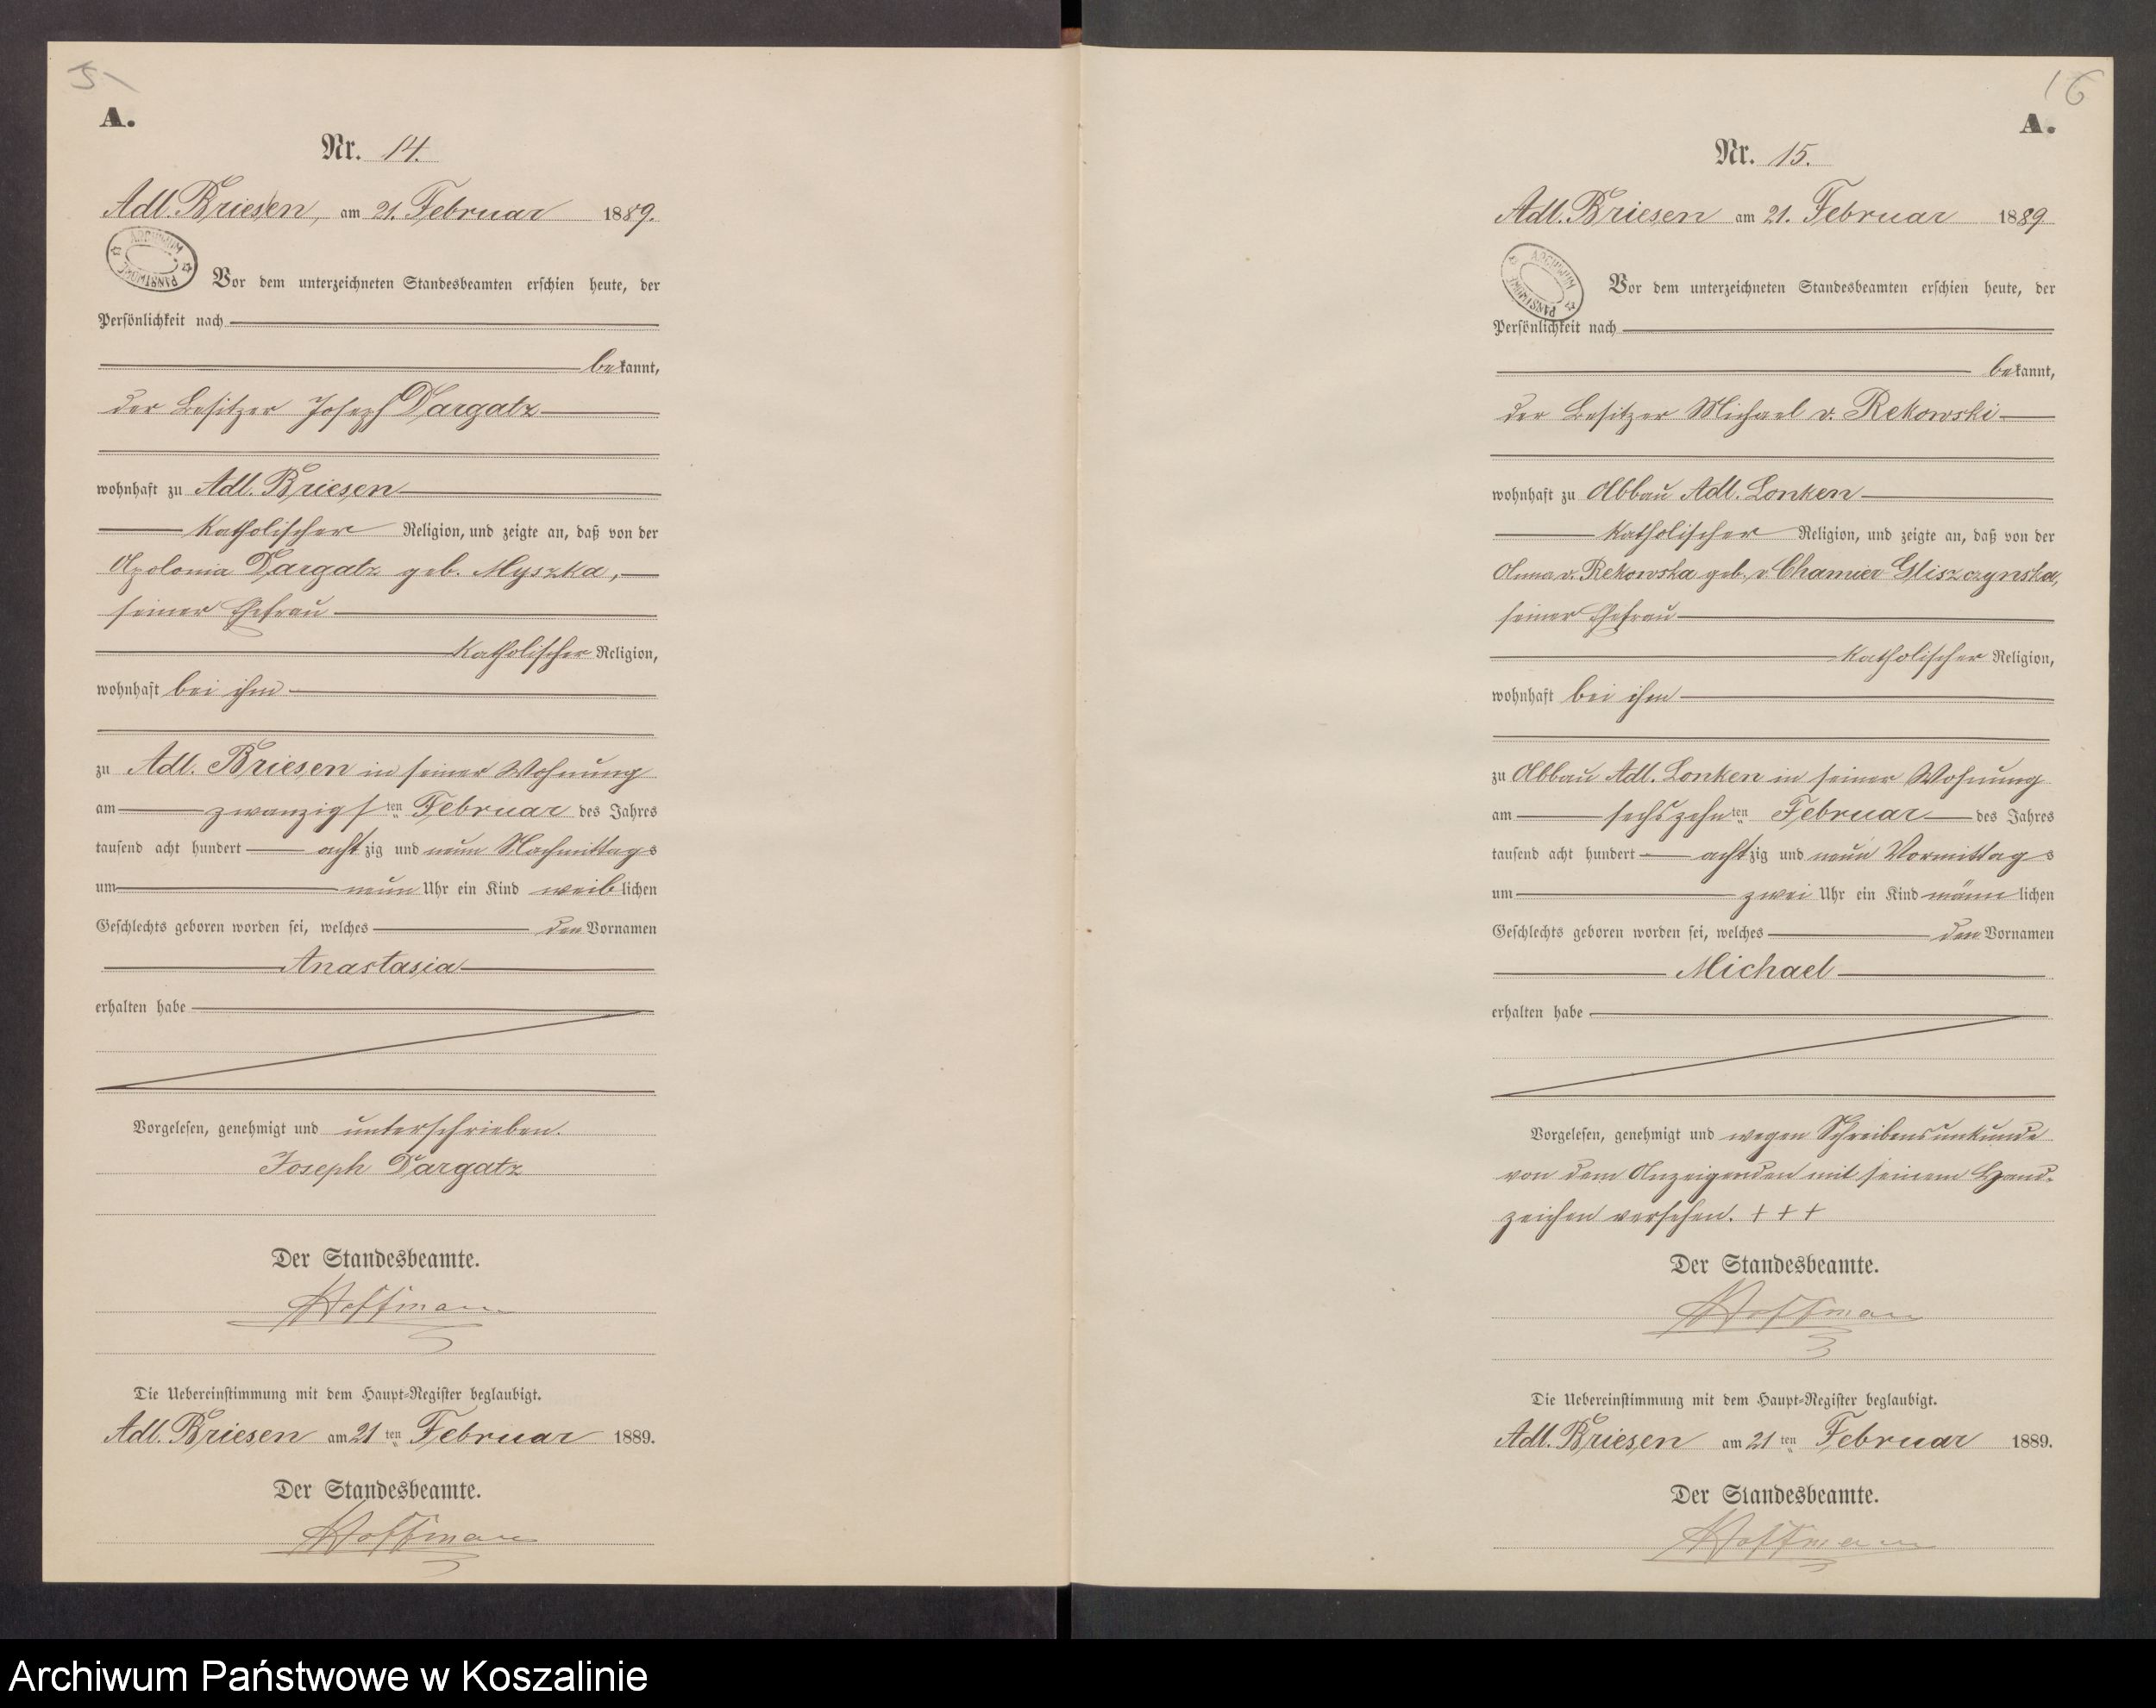 5
A.
Nr. 14.
Adl. Briesen, am 21. Februar 1889.
ARCHIWUM PAŃSTWOWE
Vor dem unterzeichneten Standesbeamten erschien heute, der
Persönlichkeit nach
bekannt,
der Besitzer Joseph Dargatz
wohnhaft zu Adl. Briesen
katholischer Religion, und zeigte an, daß von der
Apolonia Dargatz geb. Myszka,
seiner Ehefrau
katholischer Religion,
wohnhaft bei ihm
zu Adl. Briesen in seiner Wohnung
am zwanzigsten Februar des Jahres
tausend acht hundert achtzig und neun Nachmittags
um neun Uhr ein Kind weiblichen
Geschlechts geboren worden sei, welches den Vornamen
Anastasia
erhalten habe
Vorgelesen, genehmigt und unterschrieben.
Joseph Dargatz
Der Standesbeamte.
Hoffmann
Die Uebereinstimmung mit dem Haupt-Register beglaubigt.
Adl. Briesen am 21ten Februar 1889.
Der Standesbeamte.
Hoffmann
16
A.
Nr. 15.
Adl. Briesen am 21. Februar 1889
ARCHIWUM PAŃSTWOWE
Vor dem unterzeichneten Standesbeamten erschien heute, der
Persönlichkeit nach
bekannt,
der Besitzer Michael v. Rekowski
wohnhaft zu Abbau Adl. Lonken
katholischer Religion, und zeigte an, daß von der
Anna v. Rekowska geb. v. Chamier Gliszczynska,
seiner Ehefrau
katholischer Religion,
wohnhaft bei ihm
zu Abbau Adl. Lonken in seiner Wohnung
am sechszehnten Februar des Jahres
tausend acht hundert achtzig und neun Vormittags
um zwei Uhr ein Kind männlichen
Geschlechts geboren worden sei, welches den Vornamen
Michael
erhalten habe
Vorgelesen, genehmigt und wegen Schreibensunkunde
von dem Anzeigenden mit seinem Hand-
zeichen versehen. + + +
Der Standesbeamte.
Hoffmann
Die Uebereinstimmung mit dem Haupt-Register beglaubigt.
Adl. Briesen am 21ten Februar 1889.
Der Standesbeamte.
Hoffmann
Archiwum Państwowe w Koszalinie